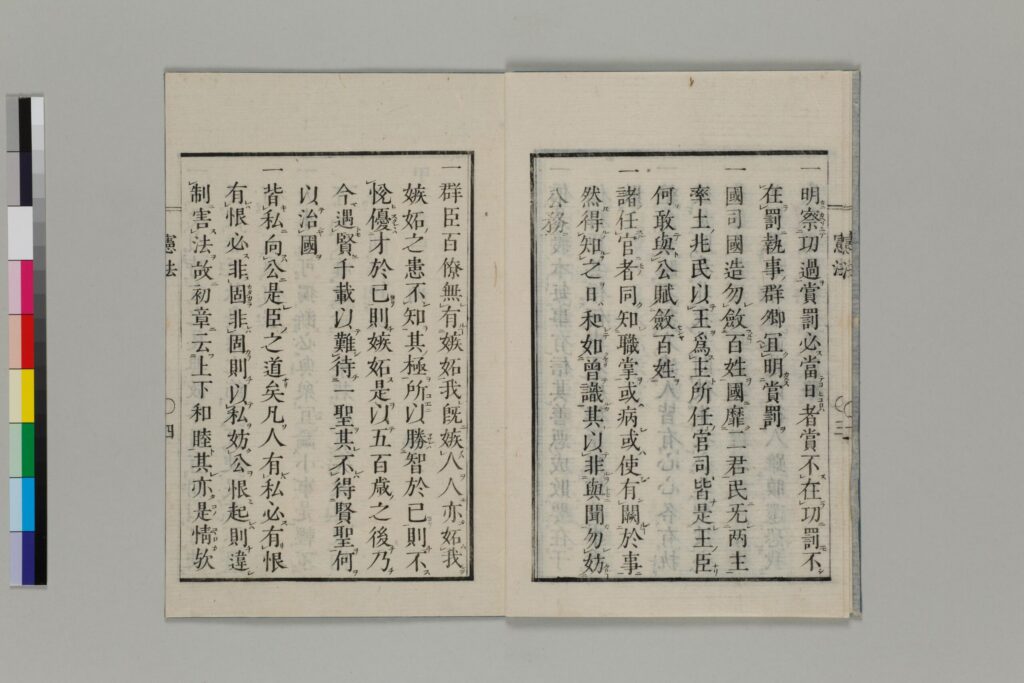 一明察功過賞罰必當日者賞不在功罰不
在罰執事群卿宜明賞罰
一國司國造勿斂百姓國靡二君民无两主
率土兆民以王爲主所任官司皆是王臣
何敢與公賦斂百姓
一諸任官者同知職掌或病或使有闕於事
然得知之日和如曾識其以非與聞勿妨
公務
憲法
三
一群臣百僚無有嫉妬我旣嫉人人亦妬我
嫉妬之患不知其極所以勝智於己則不
悅優才於己則嫉妬是以五百歲之後乃
今遇賢千載以難待一聖其不得賢聖何
以治國
一背私向公是臣之道矣凡人有私必有恨
有恨必非固非固則以私妨公恨起則違
制害法故初章云上下和睦其亦是情欤
憲法
四